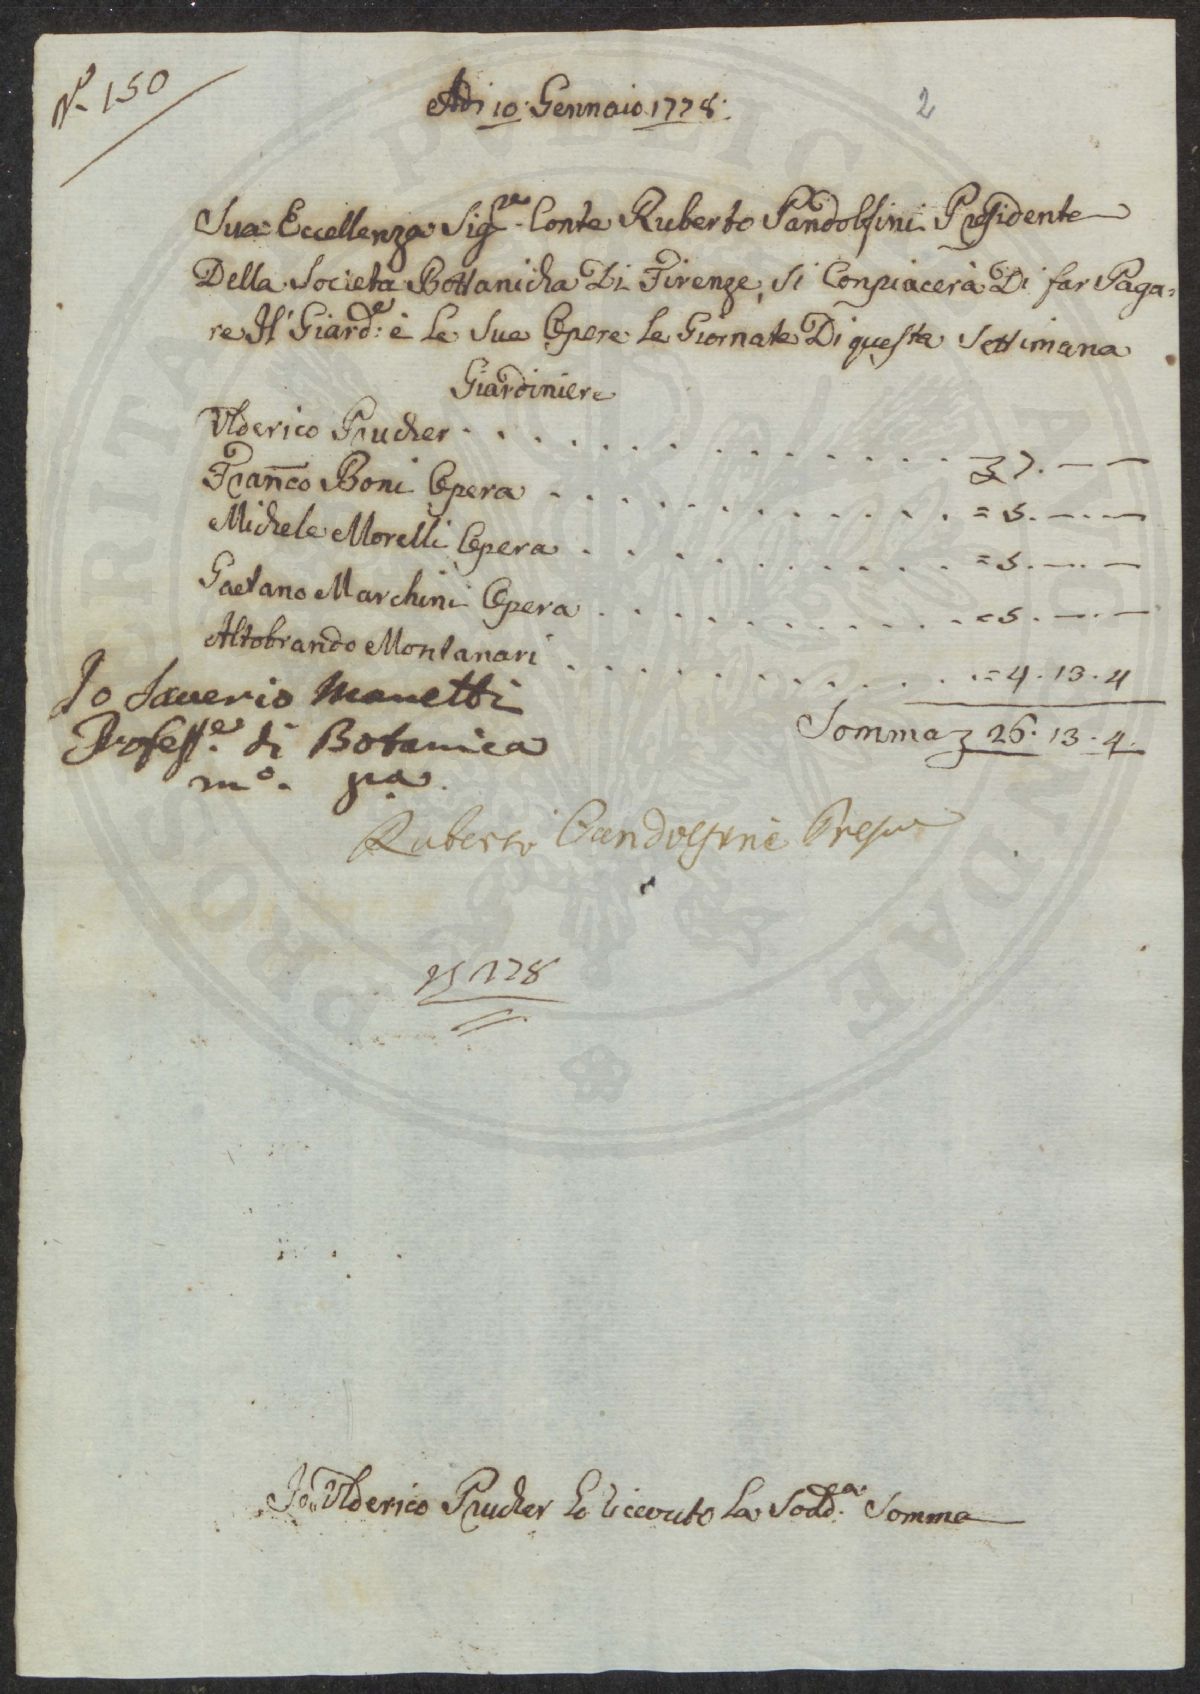 N.o 150
Adi 10: Gennaio 1778:
2
Sua Eccellenza Sig.re Conte Ruberto Pandolfini Presidente
Della Societa Bottanicha Di Firenze, si Conpiacerà Di far Paga=
re Il Giard.e è le Sue Opere le Giornate Di questa Settimana
Giardiniere
Ulderico Prucher . . . . . . . . . . . . . . 7. — —
Fran̅co Boni Opera . . . . . . . . . . . . = 5. — . —
Michele Morelli Opera . . . . . . . . . . = 5. — . —
Gaetano Marchini Opera . . . . . . . . . . = 5. — . —
Altobrando Montanari . . . . . . . . . . . = 4. 13. 4
Somma 26. 13. 4.
Io Saverio Manetti
Profess.e di Botanica
m.o pa.
Ruberto Pandolfini Presid
1778
PROSPERITATI PUBLICAE AUGENDAE
Io Ulderico Prucher ho ricevuto la Sodd.a Somma